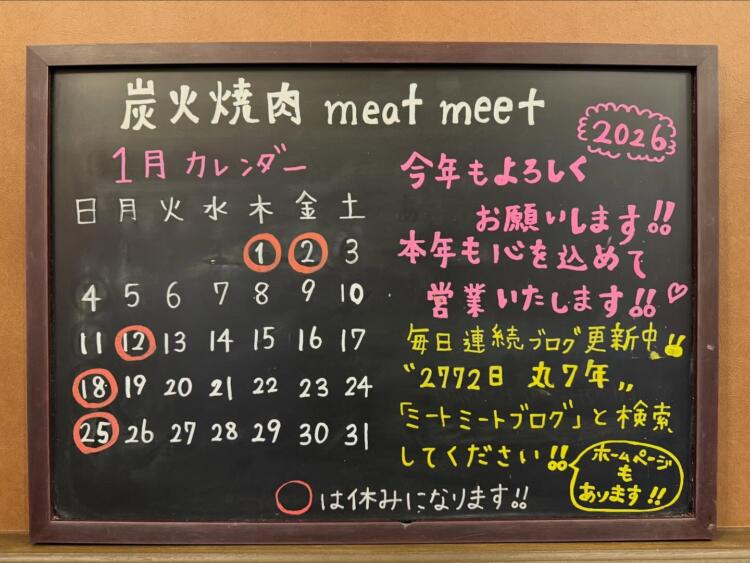 炭火焼肉 meat meet
2026
1月 カレンダー
日 月 火 水 木 金 土
1 2 3
4 5 6 7 8 9 10
11 12 13 14 15 16 17
18 19 20 21 22 23 24
25 26 27 28 29 30 31
○は休みになります!!
今年もよろしく
お願いします!!
本年も心を込めて
営業いたします!!♡
毎日連続ブログ更新中!!
〝2772日 丸7年〟
「ミートミートブログ」と検索
してください!!
ホームページ
も
あります!!